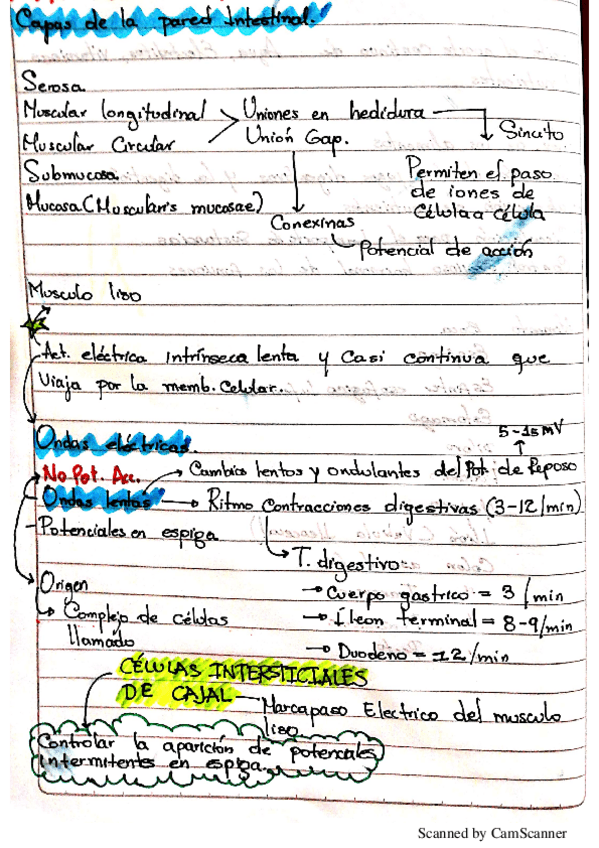 Capas de la pared Intestinal.
Serosa
Muscular longitudinal
Muscular Circular
Submucosa
Mucosa (Muscularis mucosae)
Uniones en hedidura
Unión Gap.
Sincito
Permiten el paso
de iones de
Célula a célula
Conexinas
Potencial de acción
Musculo liso
Act. eléctrica intrínseca lenta y Casi continua que
Viaja por la memb. Celular.
Ondas eléctricas.
5-15 mV
No Pot. Acc.
Cambios lentos y ondulantes del Pot. de Reposo
Ondas lentas → Ritmo Contracciones digestivas (3-12/min)
Potenciales en espiga
T. digestivo:
Origen
→ Cuerpo gastrico = 3 /min
Complejo de células
→ Íleon terminal = 8-9/min
llamado
→ Duodeno = 12/min
CÉLULAS INTERSTICIALES
DE CAJAL
Marcapaso Electrico del musculo
liso
Controlar la aparición de potenciales
intermitentes en espiga.
Scanned by CamScanner